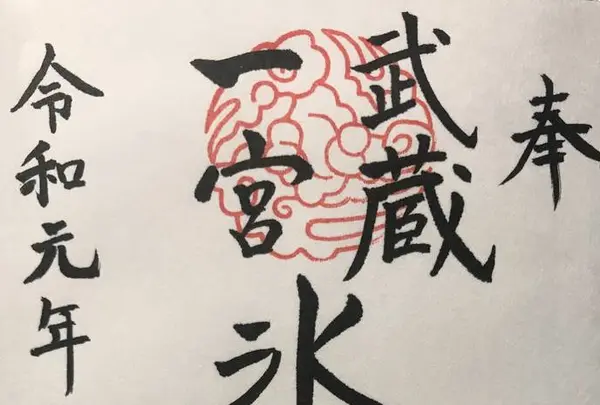 奉
武蔵
一宮
氷
令和元年